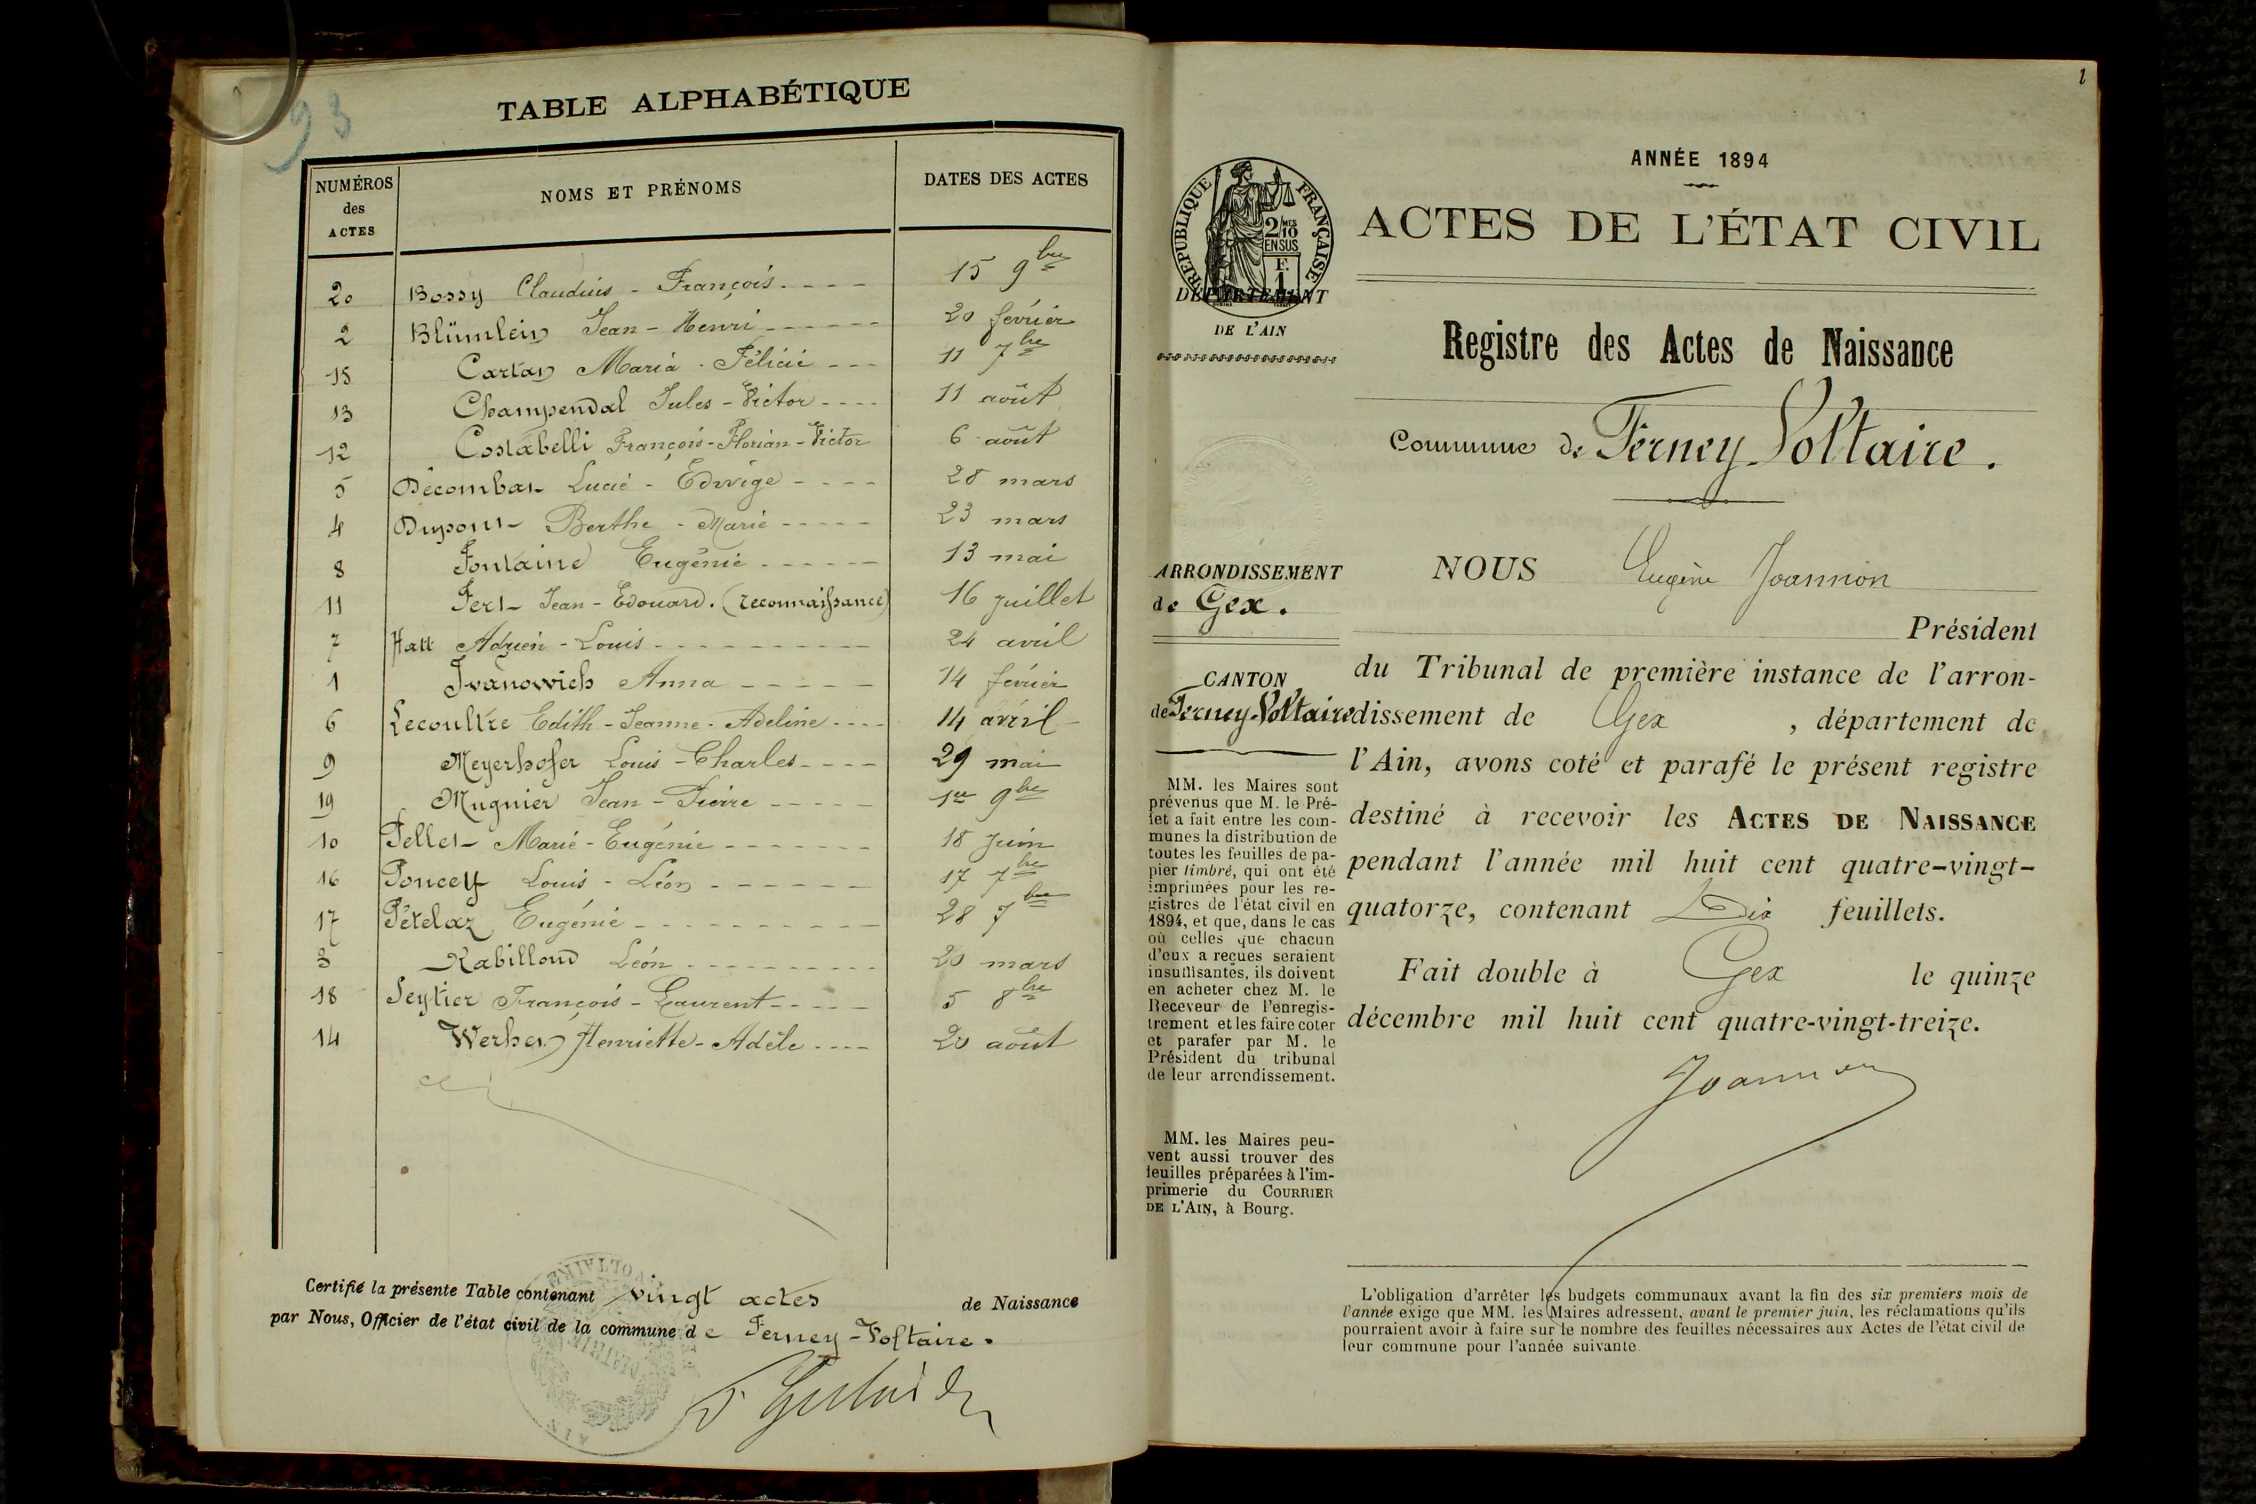 93
TABLE ALPHABÉTIQUE
NUMÉROS
des
ACTES
NOMS ET PRÉNOMS
DATES DES ACTES
20 Bossy Claudius - François 15 9bre
2 Blümlein Jean - Henri 20 février
15 Cartan Maria - Félicie 11 7bre
13 Champendal Jules - Victor 11 août
12 Costabelli François - Florian - Victor 6 août
5 Décombas Lucie - Edwige 28 mars
4 Dupont Berthe - Marie 23 mars
8 Fontaine Eugénie 13 mai
11 Fert Jean - Edouard. (reconnaissance) 16 juillet
7 Hatt Adrien - Louis 24 avril
1 Ivanowich Anna 14 février
6 Lecoultre Edith - Jeanne - Adeline 14 avril
9 Meyerhofer Louis - Charles 29 mai
19 Mugnier Jean - Pierre 1er 9bre
10 Pellet Marie - Eugénie 18 juin
16 Poncet Louis - Léon 17 7bre
17 Pételaz Eugénie 28 7bre
3 Rabilloud Léon 20 mars
18 Seytier François - Laurent 5 8bre
14 Werhen Henriette - Adèle 20 août
Certifié la présente Table contenant vingt actes de Naissance
par Nous, Officier de l'état civil de la commune de Ferney-Voltaire.
MAIRIE
AIN
1
ANNÉE 1894
RÉPUBLIQUE FRANÇAISE
2/10 MES
EN SUS
F.
1
ACTES DE L'ÉTAT CIVIL
DÉPARTEMENT
DE L'AIN
Registre des Actes de Naissance
Commune de Ferney Voltaire.
ARRONDISSEMENT
de Gex.
CANTON
de Ferney-Voltaire
MM. les Maires sont
prévenus que M. le Pré-
fet a fait entre les com-
munes la distribution de
toutes les feuilles de pa-
pier timbré, qui ont été
imprimées pour les re-
gistres de l'état civil en
1894, et que, dans le cas
où celles que chacun
d'eux a reçues seraient
insuffisantes, ils doivent
en acheter chez M. le
Receveur de l'enregis-
trement et les faire coter
et parafer par M. le
Président du tribunal
de leur arrondissement.
MM. les Maires peu-
vent aussi trouver des
feuilles préparées à l'im-
primerie du COURRIER
DE L'AIN, à Bourg.
NOUS Eugène Joannon
Président
du Tribunal de première instance de l'arron-
dissement de Gex , département de
l'Ain, avons coté et parafé le présent registre
destiné à recevoir les ACTES DE NAISSANCE
pendant l'année mil huit cent quatre-vingt-
quatorze, contenant Dix feuillets.
Fait double à Gex le quinze
décembre mil huit cent quatre-vingt-treize.
Joannon
L'obligation d'arrêter les budgets communaux avant la fin des six premiers mois de
l'année exige que MM. les Maires adressent, avant le premier juin, les réclamations qu'ils
pourraient avoir à faire sur le nombre des feuilles nécessaires aux Actes de l'état civil de
leur commune pour l'année suivante.